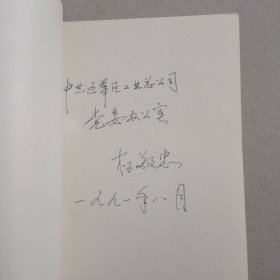 中共石羊区工业总公司
党委办公室
杨敬忠
一九九一年八月